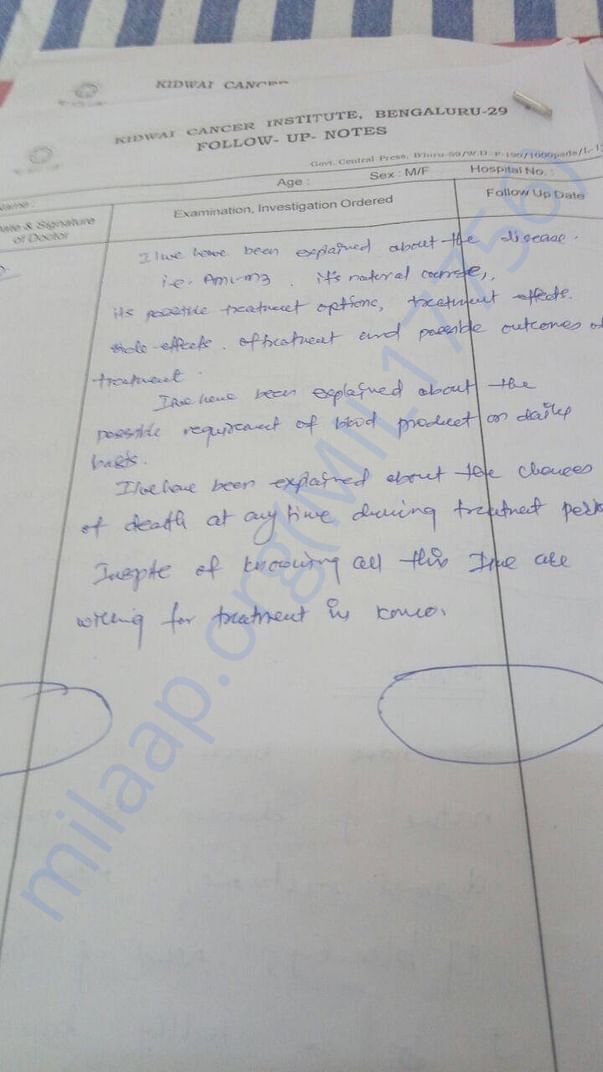 KIDWAI CANCER
KIDWAI CANCER INSTITUTE, BENGALURU-29
FOLLOW- UP- NOTES
Govt. Central Press,
Name :
Age :
Sex : M/F
Hospital No. :
Date & Signature of Doctor
Examination, Investigation Ordered
Follow Up Date
I/we have been explained about the disease.
i.e. AML-M3. it's natural course,
its possible treatment options, treatment effects.
side effects. of treatment and possible outcomes of
treatment.
I/we have been explained about the
possible requirement of blood product on daily
basis.
I/we have been explained about the chances
of death at any time during treatment
Inspite of knowing all this I/we are
willing for treatment in
milaap.org(MIL177756)